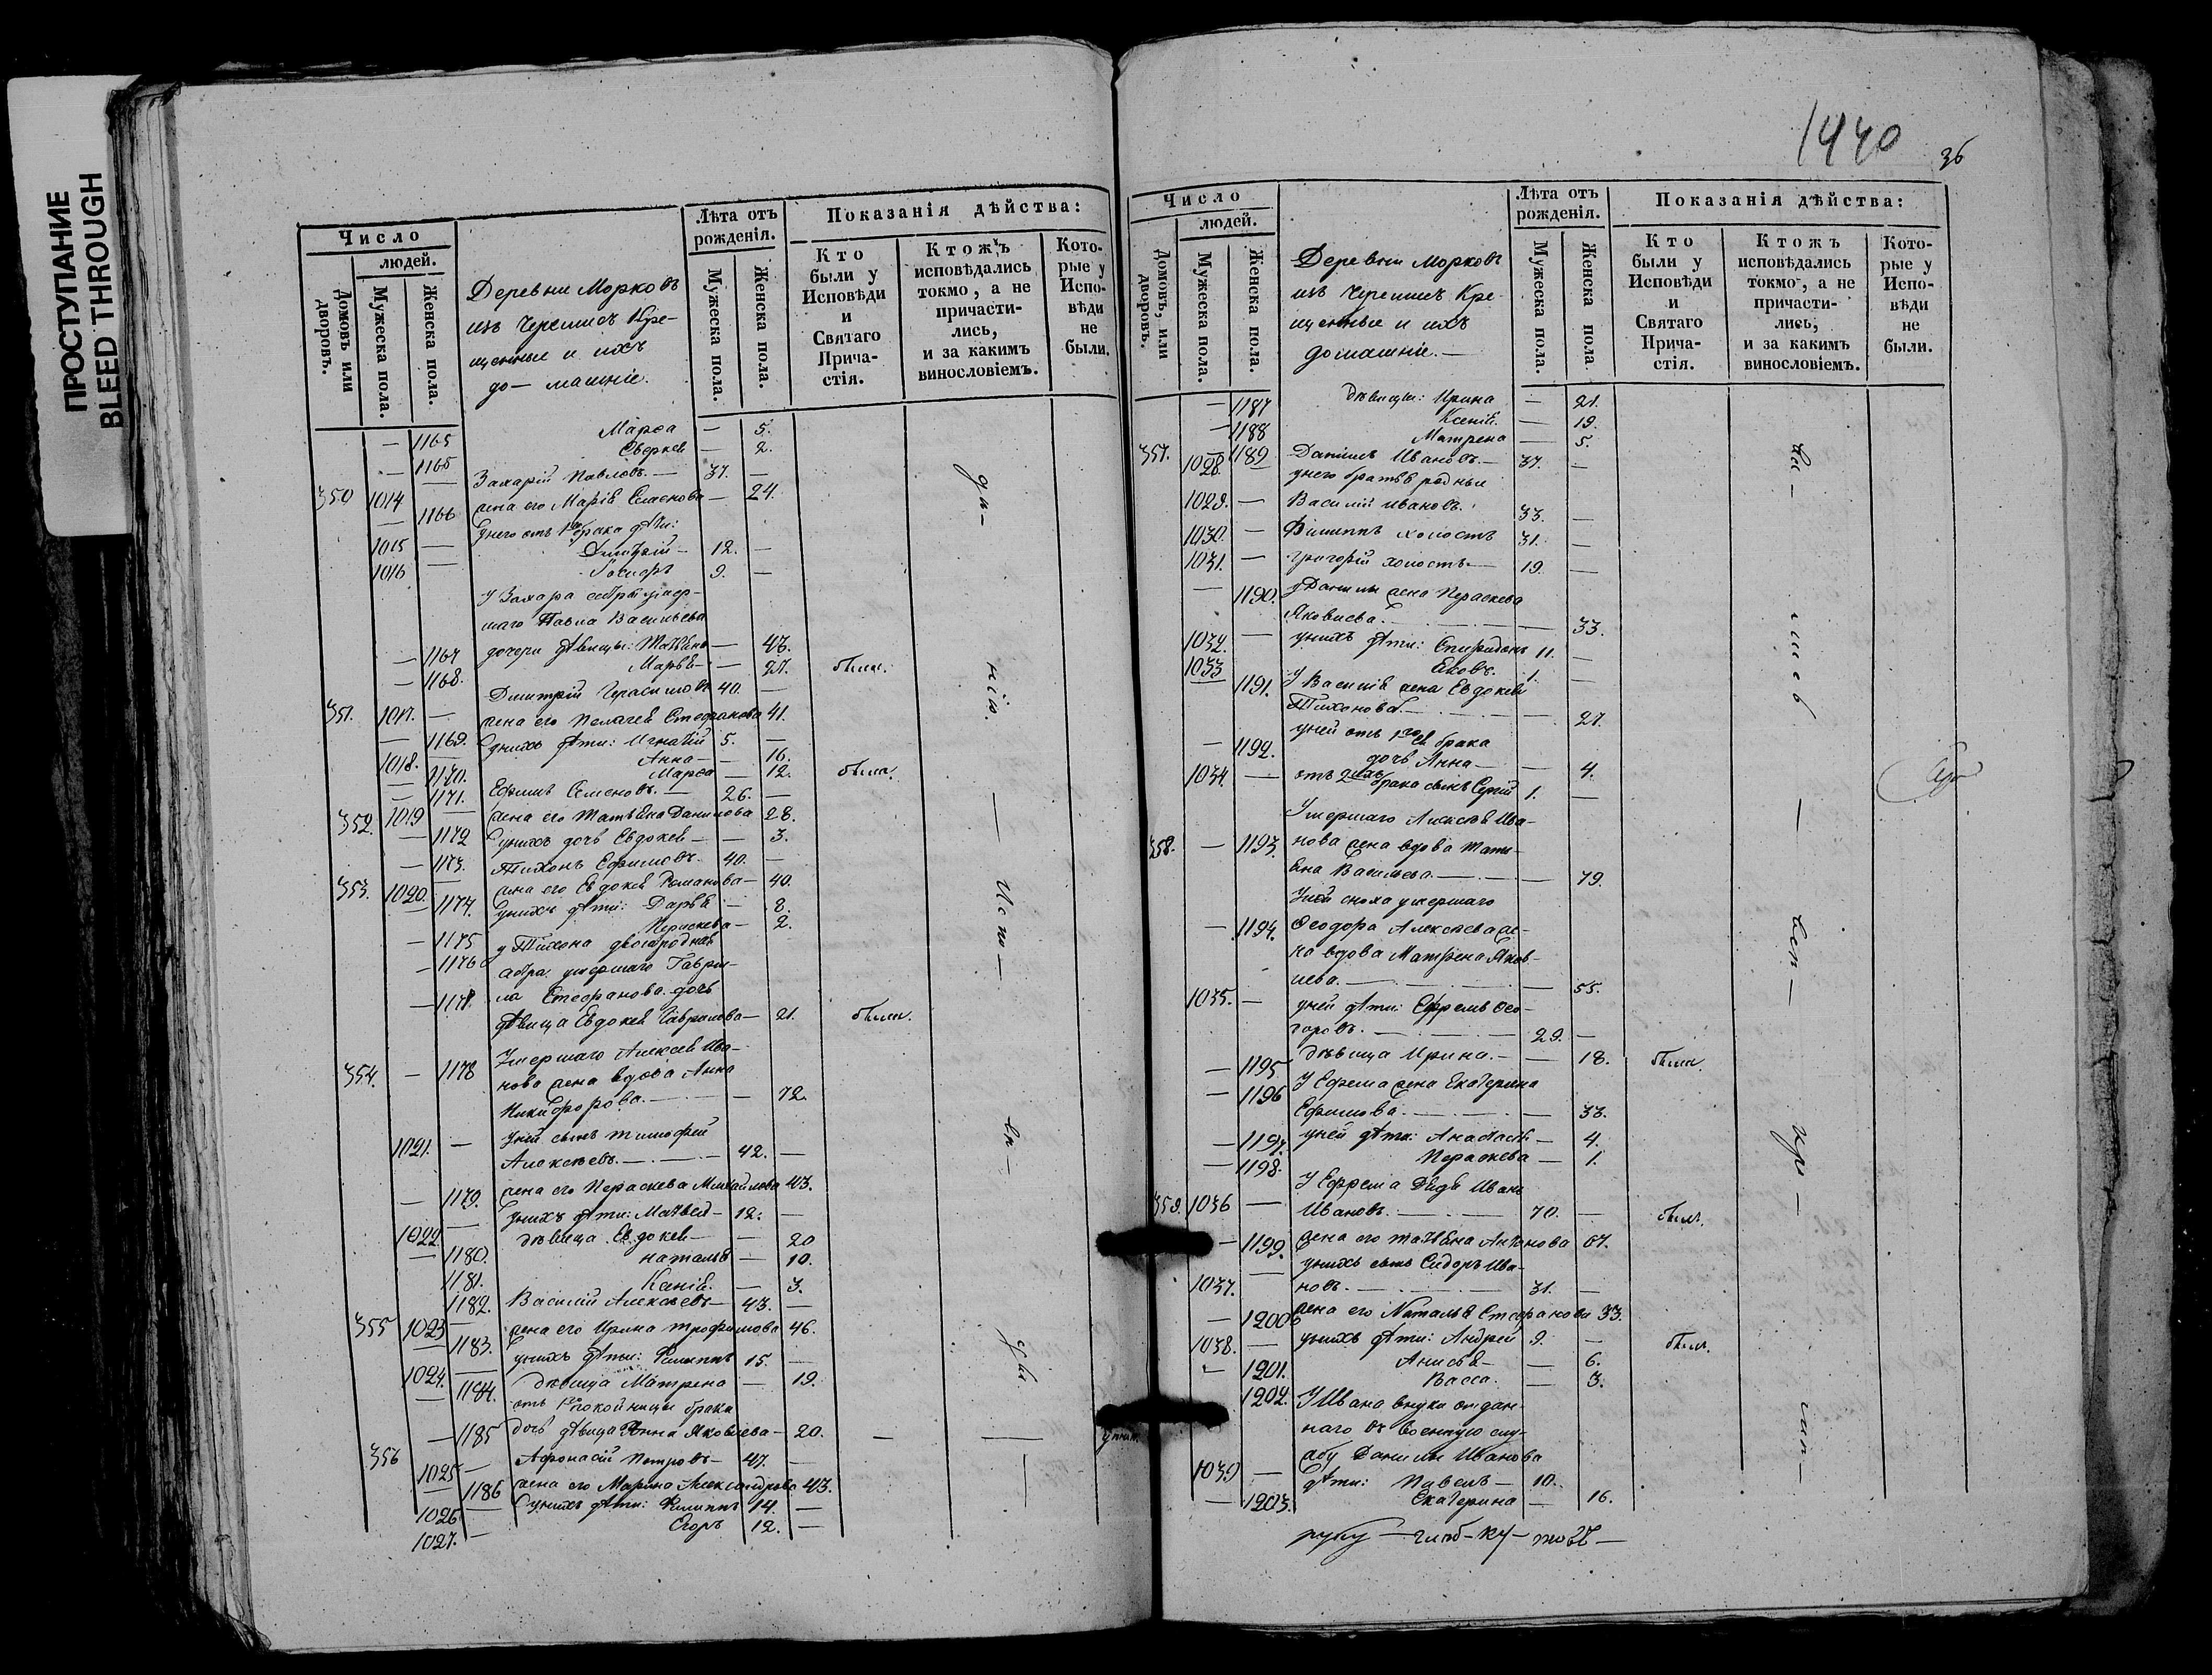 ПРОСТУПАНИЕ
BLEED THROUGH
Число
людей.
Домовъ или дворовъ.
Мужеска пола.
Женска пола.
Деревни Морковъ
изъ Черемисъ Кре-
щенные и ихъ
до- машніе.
Лѣта отъ рожденія.
Мужеска пола.
Женска пола.
Показанія дѣйства:
Кто были у Исповѣди и Святаго Причастія.
Ктожъ исповѣдались токмо, а не причастились, и за какимъ винословіемъ.
Которые у Исповѣди не были.
— 1165 Марѳа — 5.
— 1165 — 2.
350 1014 — Захарій Павловъ — 37. —
— 1166 жена его Марія Семенова — 24.
у него отъ 1го брака дѣти:
1015 — Димитрій — 12. —
1016 — 9. —
у Захара умер-
шаго Павла Васильева
— 1167 дочери дѣвицы: Татьяна — 43.
— 1168. Марья — 27. были.
351. 1017. — Дмитрій Герасимовъ 40. —
— 1169. жена его Пелагея Стефанова 41.
1018. — у нихъ дѣти: Игнатій 5. —
— 1170. Анна — 16.
— 1171. Марѳа — 12. были.
352. 1019 — Ефимъ Семеновъ. — 26. —
— 1172 жена его Татьяна Данилова 28.
— 1173. у нихъ дочь Евдокея — 3.
353. 1020. — Тихонъ Ефимовъ. 40. —
— 1174. жена его Евдокея Романова — 40.
— 1175 у нихъ дѣти: Дарья — 8.
— 1176 Параскева — 2.
у Тихона двоюродная
умершаго Гаври-
— 1178. ла Стефанова дочь
дѣвица Евдокея Гаврилова — 21. были.
354. — 1178 Умершаго Алексея Ива-
нова жена вдова Анна
Никифорова. — 72.
1021. — У ней сынъ Тимофей
Алексѣевъ. — 42. —
— 1179. жена его Параскева Михайлова 43.
1022. — у нихъ дѣти: Матвей — 12. —
— 1180. дѣвица Евдокея — 20
1181. Наталья — 10.
1182. Ксенія. — 3.
355 1023 — Василій Алексѣевъ — 43. —
— 1183. жена его Ирина Трофимова 46.
1024. — у нихъ дѣти: Филиппъ 15. —
— 1184. дѣвица Матрена — 19.
отъ 1й покойницы брака
— 1185 дочь дѣвица Анна Яковлева — 20.
356 1025 — Афонасій Петровъ — 47. —
— 1186 жена его Марина Александрова 43.
1026 — у нихъ дѣти: Филиппъ 14. —
1027. — Егоръ 12. —
1440
36
Число
людей.
Домовъ, или дворовъ.
Мужеска пола.
Женска пола.
Деревни Морковъ
изъ Черемисъ Кре-
щенные и ихъ
домашніе. —
Лѣта отъ рожденія.
Мужеска пола.
Женска пола
Показанія дѣйства:
Кто были у Исповѣди и Святаго Причастія.
Ктожъ исповѣдались токмо, а не причастились, и за какимъ винословіемъ.
Которые у Исповѣди не были.
— 1187 дѣвицы: Ирина — 21.
— 1188 Ксенія. — 19.
— 1189 Матрена — 5.
357. 1028. — Данилъ Ивановъ. — 37. —
у него братья родные
1029. — Василій Ивановъ. 33. —
1030. — Филиппъ холостъ 31. —
1031. — Григорій холостъ — 19. —
— 1190. у Данилы жена Параскева
Яковлева. — 33.
1032. — у нихъ дѣти: Спиридонъ 11. —
1033 — Яковъ. 1. —
1191. У Василія жена Евдокея
Тихонова. — 27.
у ней отъ 1го брака
— 1192. дочь Анна — 4.
1034. — отъ 2го брака сынъ Сергій 1. —
Умершаго Алексѣя Ива-
358. — 1193. нова жена вдова Тать-
яна Васильева. — 79.
У ней сноха умершаго
— 1194. Ѳеодора Алексѣева же-
на вдова Матрена Яков-
лева. — 55.
1035. — у ней дѣти: Ефремъ Ѳео-
доровъ. — 29. —
— 1195 дѣвица Ирина. — 18. были.
— 1196 У Ефрема жена Екатерина
Ефимова. — 33.
— 1197. у ней дѣти: Анастасія — 4.
— 1198. Параскева — 1.
У Ефрема дядя Иванъ
359. 1036 — Ивановъ. — 70. — былъ.
— 1199. жена его Татьяна Антонова 67.
у нихъ сынъ Сидоръ Ива-
1037. — новъ. — 31. —
— 1200. жена его Наталья Стефанова 33.
1038. — у нихъ дѣти: Андрей 9. — были.
— 1201. Анисья — 6.
1202. Васса. — 3.
У Ивана внуки отдан-
наго въ военную слу-
жбу Данилы Иванова
1039 — дѣти: Павелъ — 10.
— 1203. Екатерина — 16.